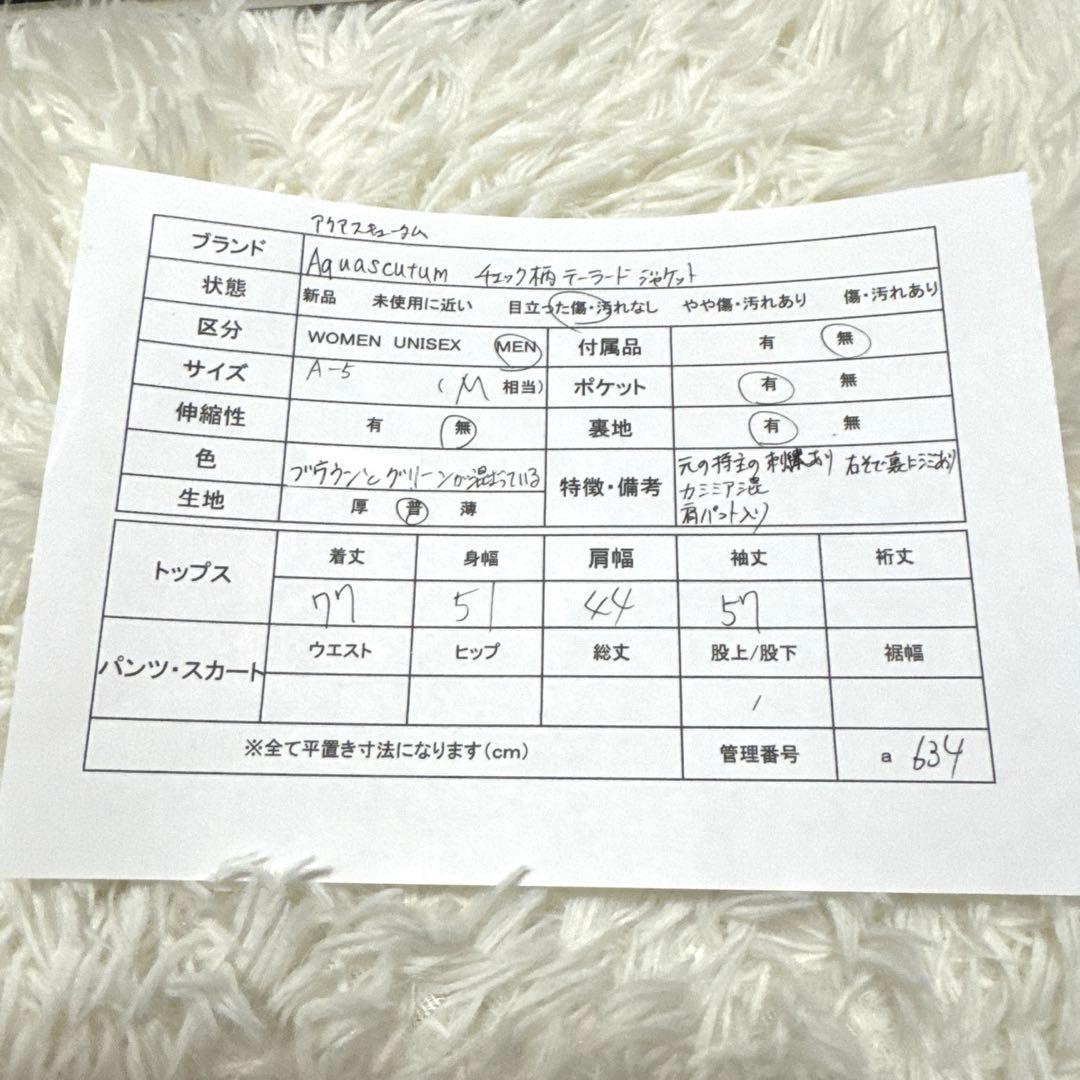 アクアスキュータム
ブランド Aquascutum チェック柄 テーラード ジャケット
状態 新品 未使用に近い 目立った傷・汚れなし やや傷・汚れあり 傷・汚れあり
区分 WOMEN UNISEX MEN 付属品 有 無
サイズ A-5 (M 相当) ポケット 有 無
伸縮性 有 無 裏地 有 無
色 ブラウンとグリーンが混ざっている 特徴・備考 元の持主の刺繍あり 右そで裏上シミあり
カシミア混
肩パット入り
生地 厚 普 薄
トップス 着丈 身幅 肩幅 袖丈 裄丈
77 51 44 57
パンツ・スカート ウエスト ヒップ 総丈 股上/股下 裾幅
/
※全て平置き寸法になります(cm) 管理番号 a 634